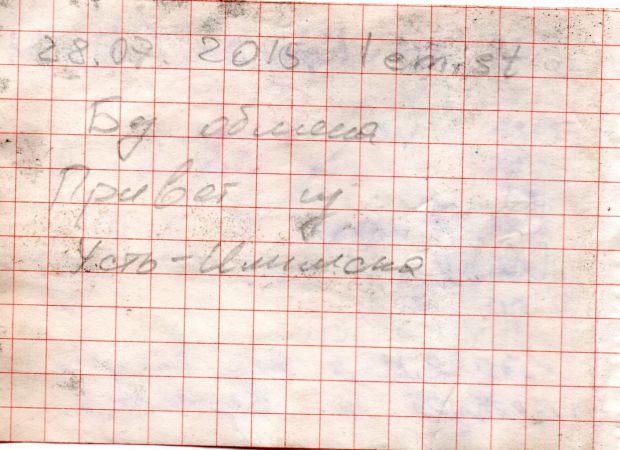 28.07.2015 lemist
Бз обмена
Привет из
Усть-Илимска